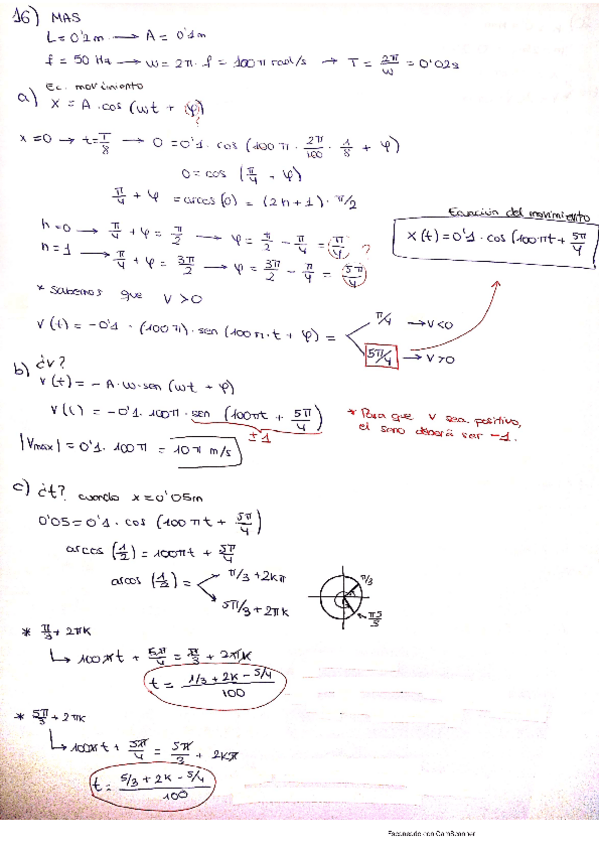 16) MAS
L = 0'2m → A = 0'1m
f = 50 Hz → w = 2π · f = 100π rad/s → T = 2π/w = 0'02s
Ec. movimiento
a) x = A · cos (wt + φ)
?
x = 0 → t = T/8 → 0 = 0'1 · cos (100π · 2π/100 · 1/8 + φ)
0 = cos (π/4 + φ)
π/4 + φ = arcos (0) = (2n+1) · π/2
n = 0 → π/4 + φ = π/2 → φ = π/2 - π/4 = π/4 ?
n = 1 → π/4 + φ = 3π/2 → φ = 3π/2 - π/4 = 5π/4
Ecuación del movimiento
x(t) = 0'1 · cos (100πt + 5π/4
* Sabemos que V > 0
V(t) = -0'1 · (100π) · sen (100π · t + φ) =
π/4 → V<0
5π/4 → V>0
b) ¿v?
V(t) = -A · w · sen (wt + φ)
V(t) = -0'1 · 100π · sen (100πt + 5π/4)
±1
* Para que V sea positivo,
el seno deberá ser -1.
|Vmax| = 0'1 · 100π = 10π m/s
c) ¿t? cuando x = 0'05m
0'05 = 0'1 · cos (100πt + 5π/4)
arcos (1/2) = 100πt + 5π/4
arcos (1/2) =
π/3 + 2kπ
5π/3 + 2πk
π/3
π5/3
* π/3 + 2πk
↳ 100πt + 5π/4 = π/3 + 2πk
t = (1/3 + 2k - 5/4)/100
* 5π/3 + 2πk
↳ 100πt + 5π/4 = 5π/3 + 2kπ
t = (5/3 + 2k - 5/4)/100
Escaneado con CamScanner